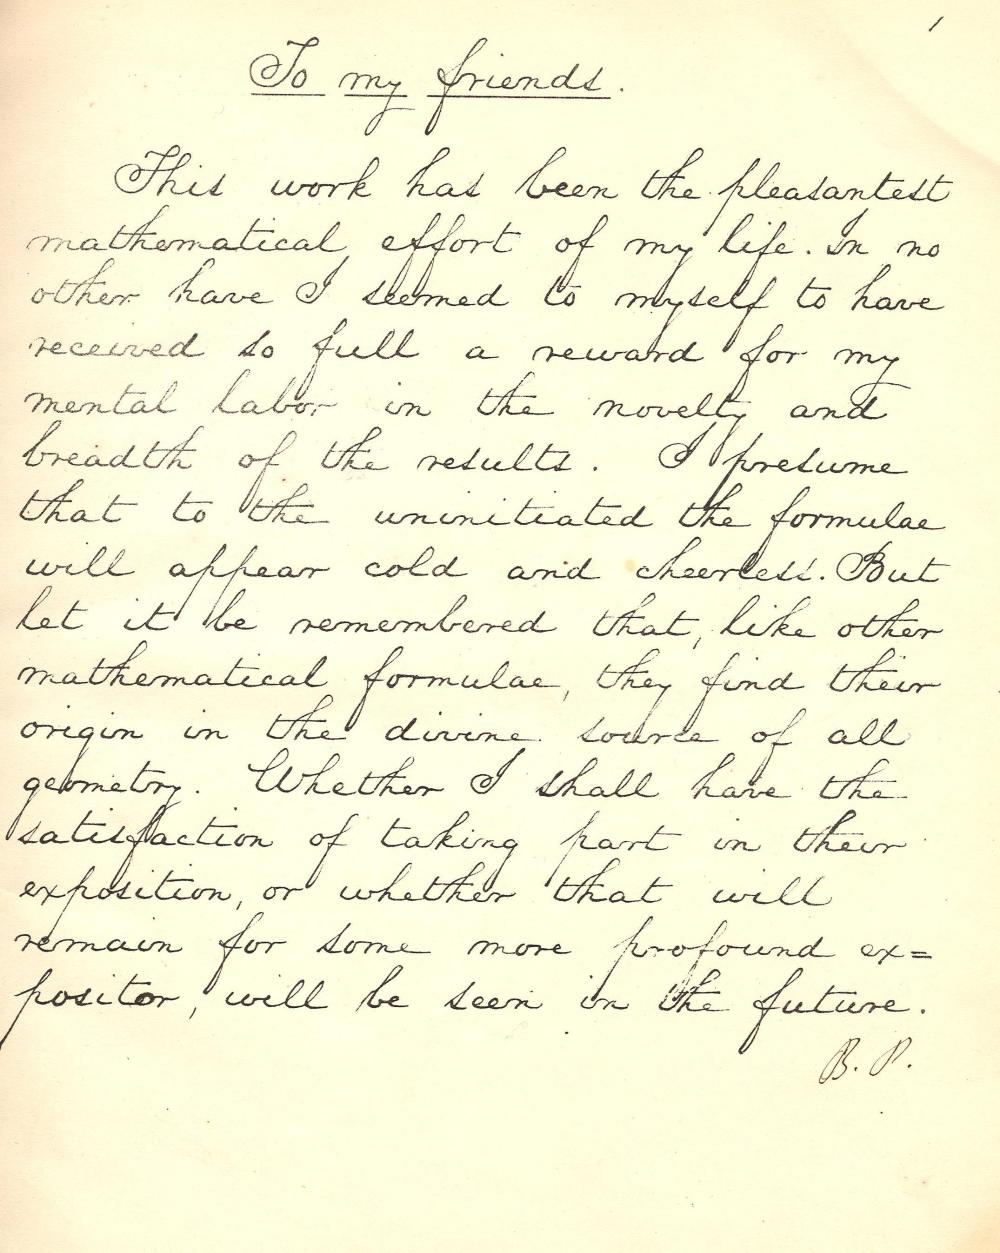 1
To my friends.
This work has been the pleasantest
mathematical effort of my life. In no
other have I seemed to myself to have
received so full a reward for my
mental labor in the novelty and
breadth of the results. I presume
that to the uninitiated the formulae
will appear cold and cheerless. But
let it be remembered that, like other
mathematical formulae, they find their
origin in the divine source of all
geometry. Whether I shall have the
satisfaction of taking part in their
exposition, or whether that will
remain for some more profound ex=
positor, will be seen in the future.
B. P.